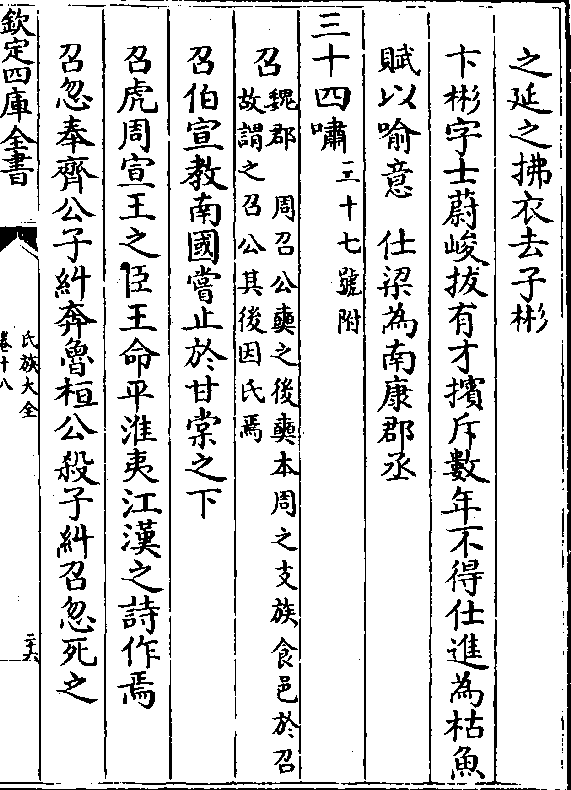 之延之拂衣去子彬
卞彬字士蔚峻拔有才擯斥數年不得仕進為枯魚
賦以喻意　仕梁為南康郡丞
三十四嘯三十七號附
召魏郡　周召公奭之後奭本周之支族食邑於召
故謂之召公其後因氏焉
召伯宣教南國嘗止於甘棠之下
召虎周宣王之臣王命平淮夷江漢之詩作焉
召忽奉齊公子糾奔魯桓公殺子糾召忽死之
欽定四庫全書
氏族大全
卷十八
二六